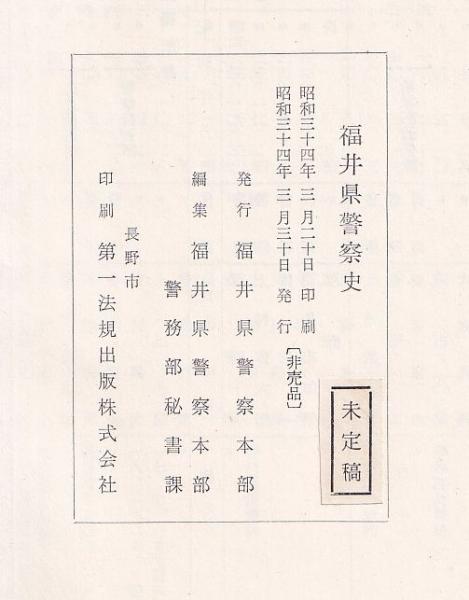 福井県警察史
未定稿
昭和三十四年 三 月二十日 印 刷
昭和三十四年 三 月三十日 発 行 〔非売品〕
発 行 福井県警察本部
編 集 福井県警察本部
警務部秘書課
長野市
印 刷 第一法規出版株式会社